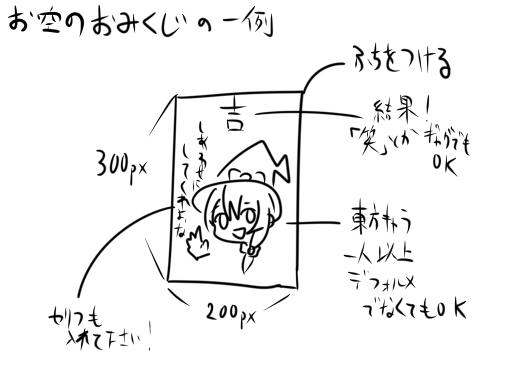 お空のおみくじの一例
ふちをつける
吉
結果!
「笑」とかギャグでも
OK
しあわせに
してくれよな
300px
東方キャラ
一人以上
デフォルメ
でなくてもOK
200px
セリフも
入れて下さい!